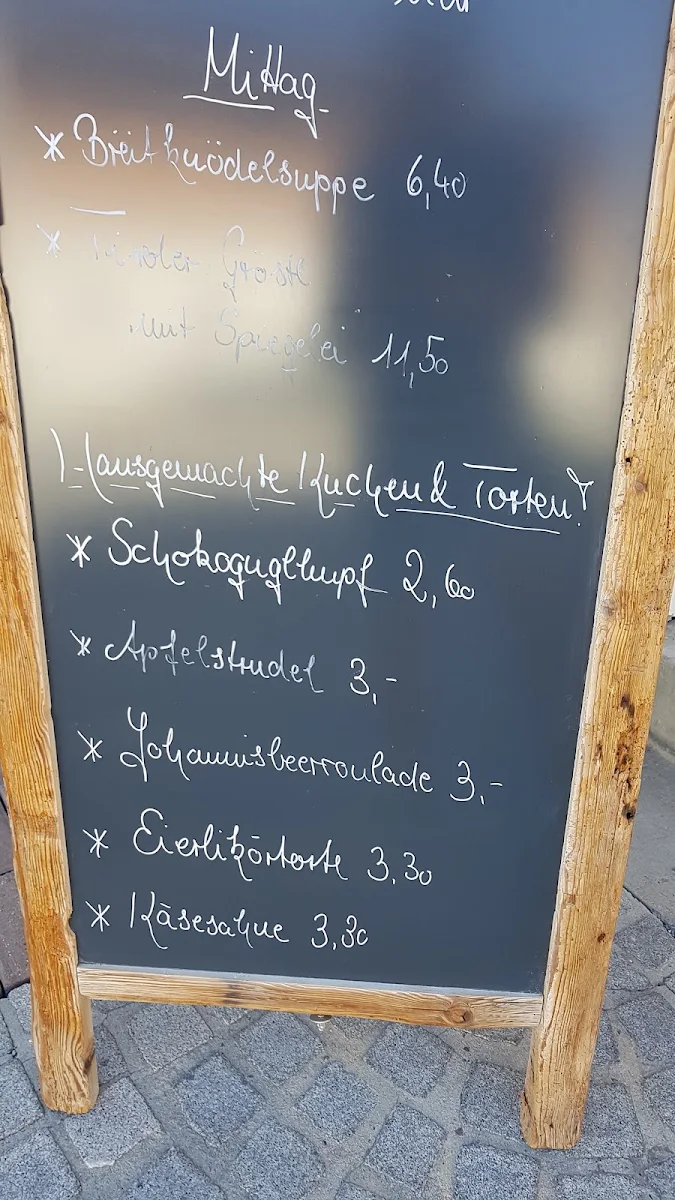 Mittag
* Breitknödelsuppe 6,40
* Tiroler Gröstl
mit Spiegelei 11,50
Hausgemachte Kuchen & Torten!
* Schokoguglhupf 2,60
* Apfelstrudel 3,-
* Johannisbeerroulade 3,-
* Eierlikörtorte 3,30
* Käsesahne 3,30